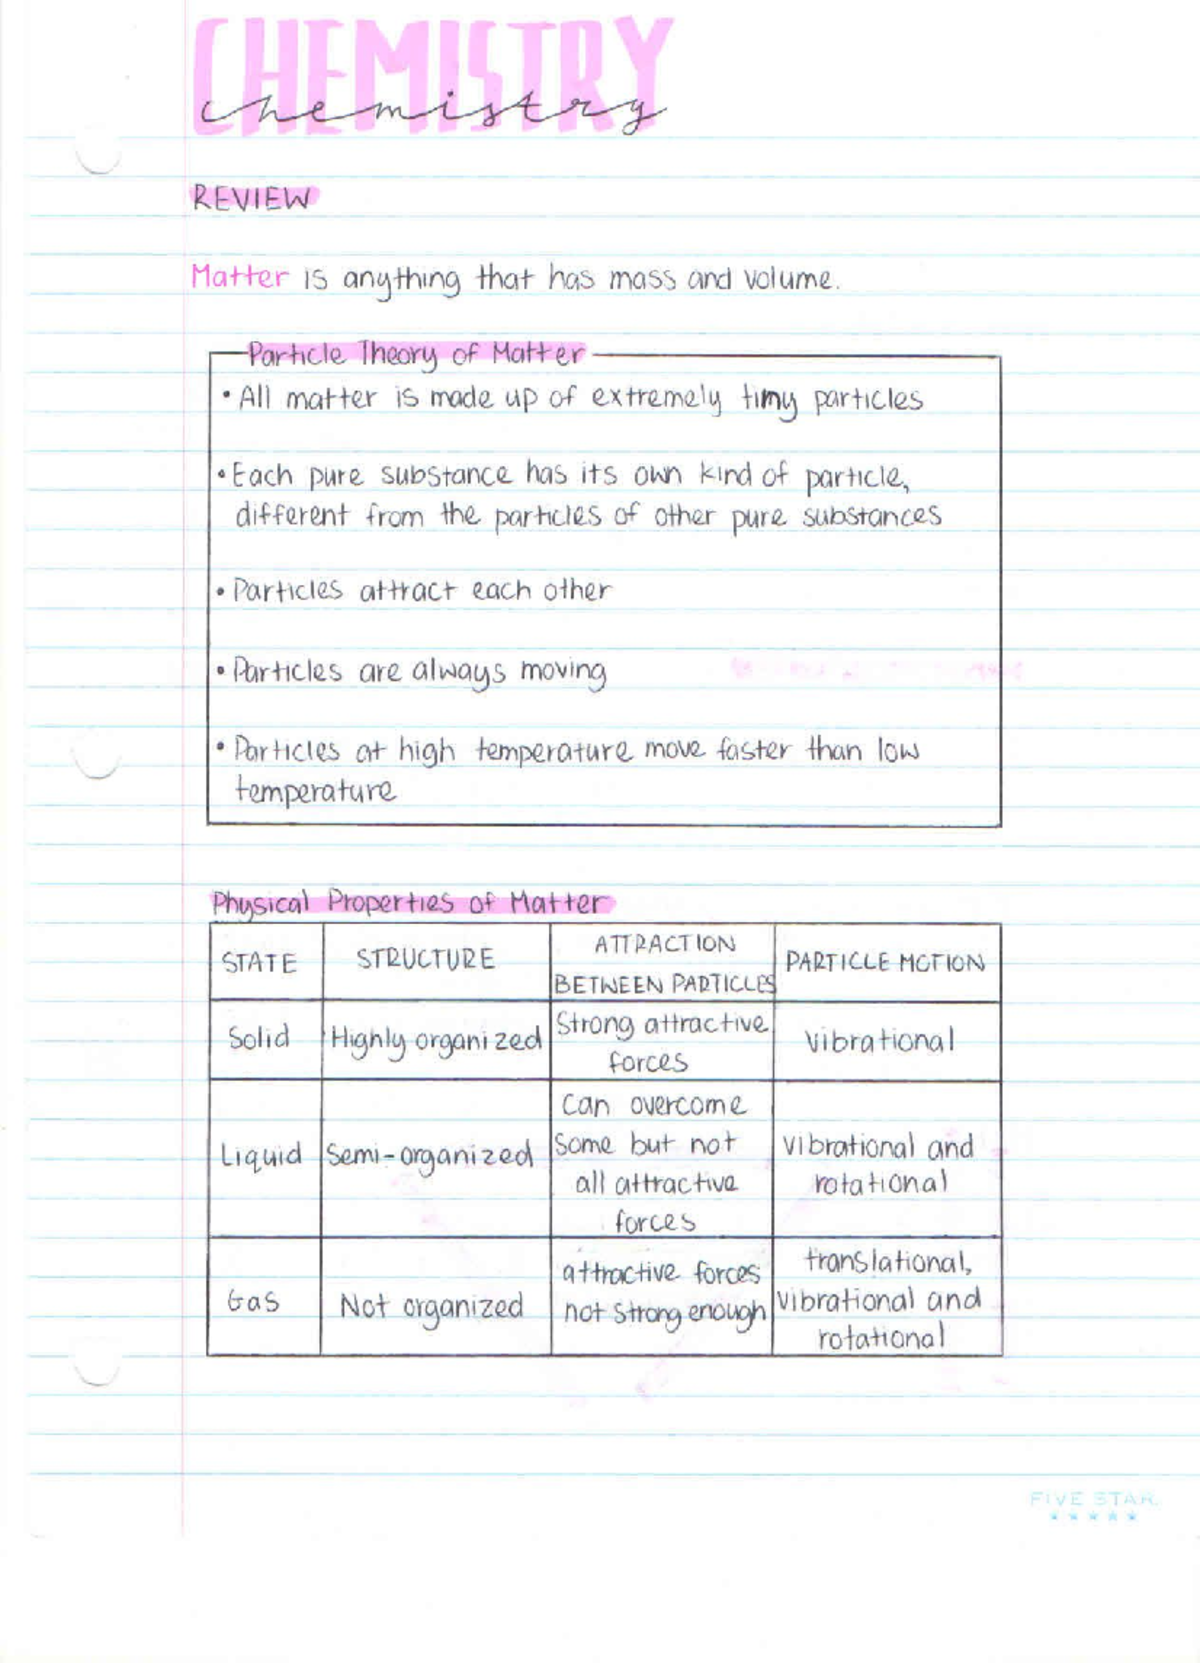 CHEMISTRY
chemistry
REVIEW
Matter is anything that has mass and volume.
Particle Theory of Matter
• All matter is made up of extremely tiny particles
• Each pure substance has its own kind of particle,
different from the particles of other pure substances
• Particles attract each other
• Particles are always moving
• Particles at high temperature move faster than low
temperature
Physical Properties of Matter
STATE
STRUCTURE
ATTRACTION
BETWEEN PARTICLES
PARTICLE MOTION
Solid
Highly organized
Strong attractive
forces
vibrational
Liquid
Semi-organized
Can overcome
some but not
all attractive
forces
vibrational and
rotational
Gas
Not organized
attractive forces
not strong enough
translational,
vibrational and
rotational
FIVE STAR